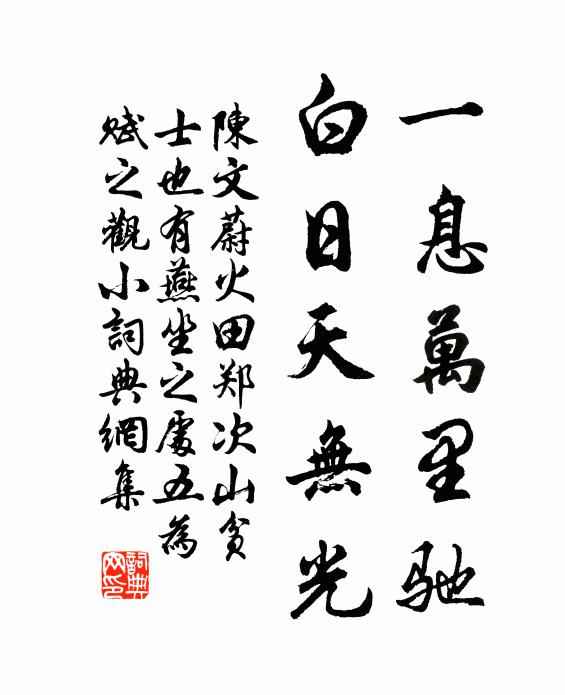 一息萬里馳
白日天無光
陳文蔚火田郑次山貧
士也有燕坐之處五為
赋之觀小詞典網集
詞典網印